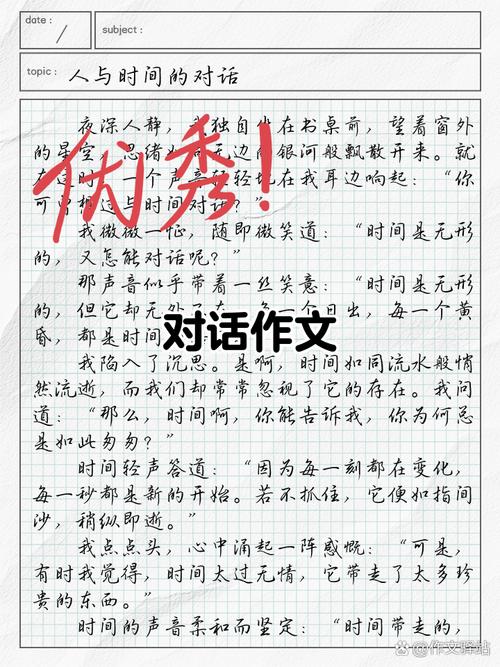 date:
subject:
topic: 人与时间的对话
夜深人静，我独自坐在书桌前，望着窗外
的星空，思绪如同无边的银河般飘散开来。就
在这时，一个声音轻轻地在我耳边响起：“你
可曾想过与时间对话？”
优秀！
我微微一怔，随即微笑道：“时间是无形
的，又怎能对话呢？”
那声音似乎带着一丝笑意：“时间是无形
的，但它却无处不在，每一个日出，每一个黄
昏，都是时间
对话作文
我陷入了沉思。是啊，时间如同流水般悄
然流逝，而我们却常常忽视了它的存在。我问
道：“那么，时间啊，你能告诉我，你为何总
是如此匆匆？”
时间轻声答道：“因为每一刻都在变化，
每一秒都是新的开始。若不抓住，它便如指间
沙，稍纵即逝。”
我点点头，心中涌起一阵感慨：“可是，
有时我觉得，时间太过无情，它带走了太多珍
贵的东西。”
时间的声音柔和而坚定：“时间带走的，
@作文驿站